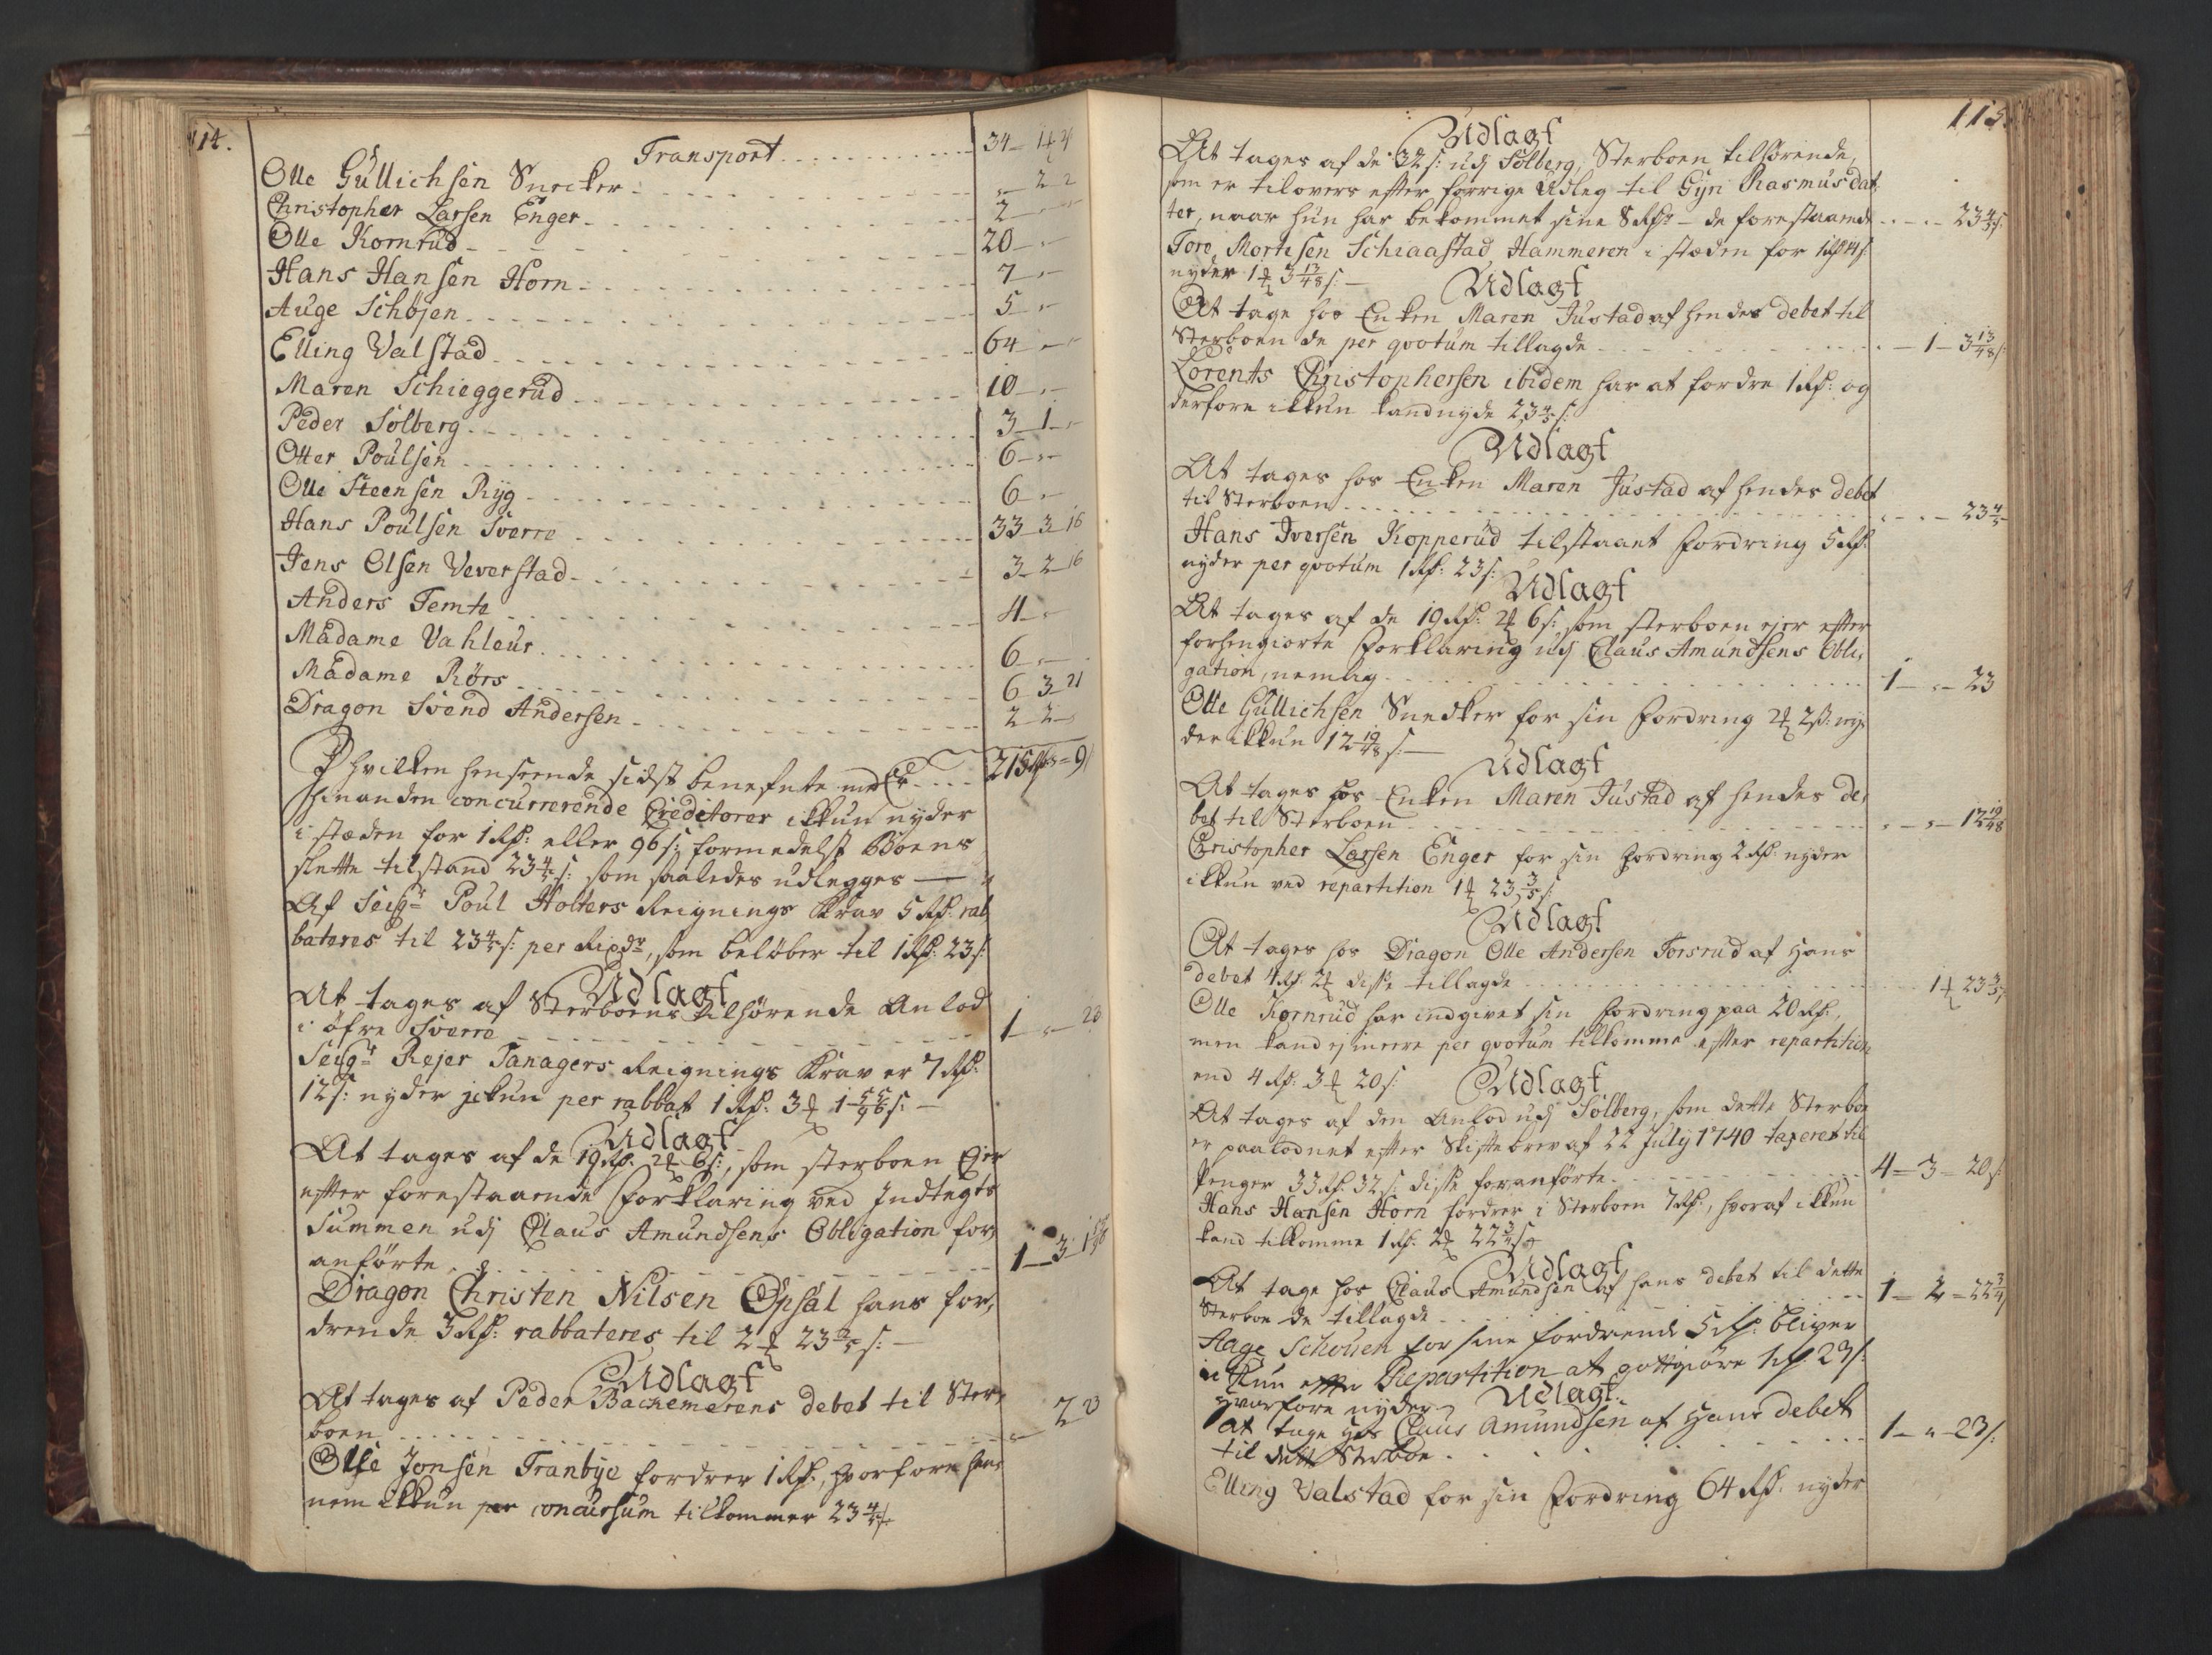 114.
Transport 34 – 1 – 21
Olle Gullichsen Snecker – 2 2
Christopher Larsen Enger 2 – –
Olle Kornrud 20 – –
Hans Hansen Horn 7 – –
Auge Schøjen 5 – –
Elling Valstad 64 – –
Maren Schieggerud 10 – –
Peder Solberg 3 – 1 –
Otter Poulsen 6 – –
Olle Steensen Ryg 6 – –
Hans Poulsen Sverre 33 – 3 – 16
Jens Olsen Veverstad 3 – 2 – 16
Anders Temte 4 – –
Madame Vahleur 6 – –
Madame Rørs 6 – 3 – 21
Dragon Svend Andersen 2 – 2 –
I hvilken henseende sidst benefnte med Er 215
hinanden concurrerende Creditorer ikkun nyder
i stæden for 1 Rd: eller 96 s: formedelst Boens
slette tilstand 23 4/5 s: som saaledes udlegges —
Af Seigr Poul Holters Reignings Krav 5 Rd: rab
bateres til 23 4/5 s: per Rixdr, som beløber til 1 Rd: 23 s:
Udlagt
At tages af Sterboens tilhørende Anlod
i øfre Sverre 1 – „ – 23
Seigr Rejer Tanagers Reignings Krav er 7 Rd:
12 s: nyder jckun per rabbat 1 Rd: 3 ₰ 1 55/96 s: –
Udlagt
At tages af de 19 Rd: 2 ₰ 6 s:, som sterboen Ejer
efter forestaaende Forklaring ved Indtegts
Summen udj Claus Amundsens Obligation for
anførte 1 – 3 – 1 55/96
Dragon Christen Nilsen Opsal hans for,
drende 3 Rd: rabbateres til 2 ₰ 23 2/5 s: –
Udlagt
At tages af Peder Bachemerens debet til Ster,
boen – 2 23
Olle Jonsen Tranbye fordrer 1 Rd:, hvorfore han
nem ikkun per concursum tilkommer 23 4/5 s:
115.
Udlagt
At tages af de 32 s: udj Solberg, Sterboen tilhørende,
som er tilovers efter forrige Udleg til Gyri Rasmusdat
ter, naar hun har bekommet sine 8 Rdr – de forestaaende – „ – 23 4/5 s:
Tore Mortisen Schiaastad Hammeren i stæden for 1 Rd 14 s:
nyder 1 ₰ 3 13/48 s: –
Udlagt
At tage hos Enken Maren Justad af hendes debet til
Sterboen de per qvotum tillagde – 1 – 3 13/48 s:
Lorents Christophersen ibidem har at fordre 1 Rd: og
derfore ikkun kand nyde 23 4/5 s:
Udlagt
At tages hos Enken Maren Justad af hendes debet
til Sterboen – „ – 23 4/5
Hans Iversen Kopperud tilstaaet fordring 5 Rd:
nyder per qvotum 1 Rd: 23 s:
Udlagt
At tages af de 19 Rd: 2 ₰ 6 s: som sterboen ejer efter
forhengiorte Forklaring udj Claus Amundsens Obli,
gation, nemlig 1 – „ – 23
Olle Gullichsen Snedker for sin fordring 2 ₰ 2 s: ny,
der ikkun 12 19/48 s: —
Udlagt
At tages hos Enken Maren Justad af hendes de,
bet til Sterboen „ – „ – 12 19/48
Christopher Larsen Enger for sin fordring 2 Rd: nyder
ikkun ved repartition 1 ₰ 23 3/5 s:
Udlagt
At tages hos Dragon Olle Andersen Torsrud af hans
debet 4 Rd: 2 ₰ disse tillagde 1 ₰ 23 3/5
Olle Kornrud har indgivet sin fordring paa 20 Rd:,
men kand ej meere per qvotum tilkomme efter repartition
end 4 Rd: 3 ₰ 20 s:
Udlagt
At tages af den Anlod udj Solberg, som dette Sterboe
er paalodnet efter Skiftebrev af 22 July 1740 taxeret til
Penger 33 Rd: 32 s: disse foranførte 4 – 3 – 20 s:
Hans Hansen Horn fordrer i Sterboen 7 Rd:, hvoraf ikkun
kand tilkomme 1 Rd: 2 ₰ 22 3/5 s:
Udlagt
At tage hos Claus Amundsen af hans debet til dette
Sterboe de tillagde 1 – 2 – 22
Aage Schouen for sine fordrende 5 Rd: bliver
ikkun efter Repartition at gottgiøre 1 Rd: 23 s:
hvorfore nyder
Udlagt.
at tage hos Claus Amundsen af Hans debet
til dette Sterboe 1 – „ – 23 s:
Elling Valstad for sin fordring 64 Rd: nyder